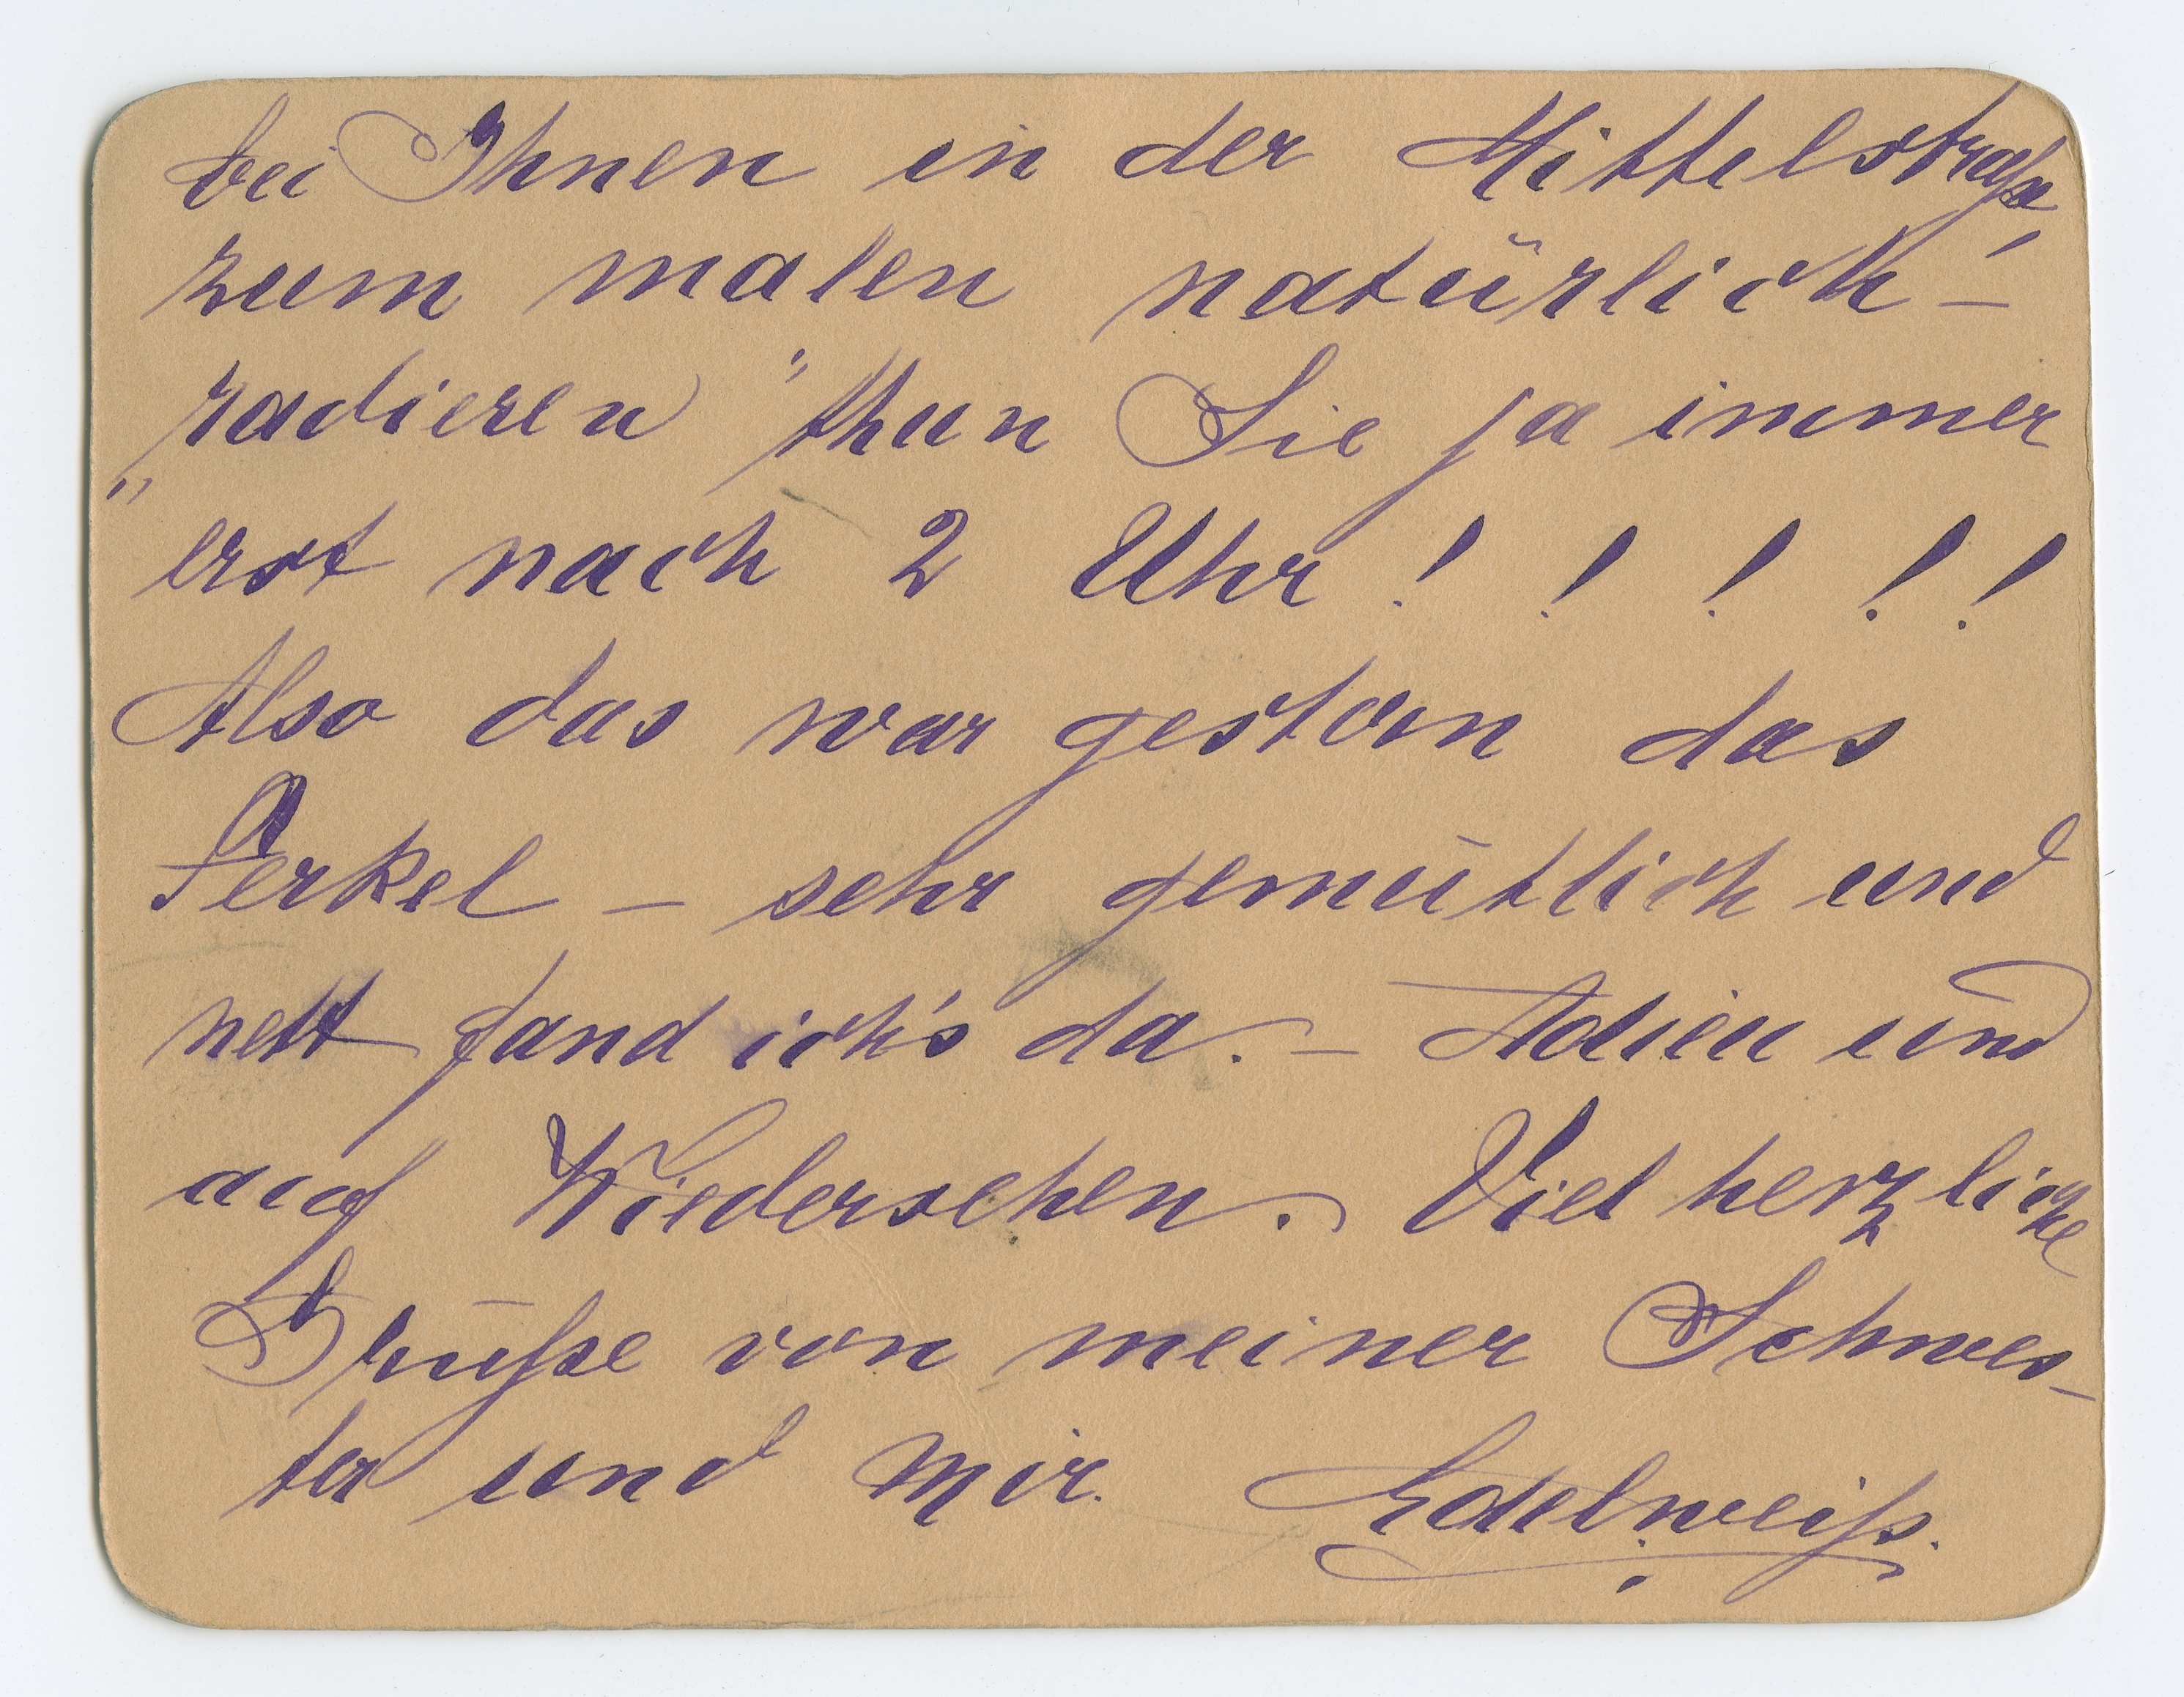 bei Ihnen in der Mittelstraße,
zum malen natürlich –
„radieren“ thun Sie ja immer
erst nach 2 Uhr! ! ! ! !
Also das war gestern das
Ferkel – sehr gemütlich und
nett fand ich's da. – Adieu und
auf Wiedersehen. Viel herzliche
Grüße von meiner Schwes-
ter und mir. Edelweiß.